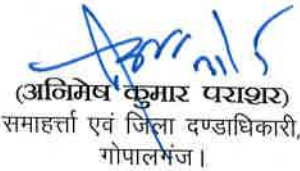 (अनिमेष कुमार पराशर)
समाहर्त्ता एवं जिला दण्डाधिकारी,
गोपालगंज।